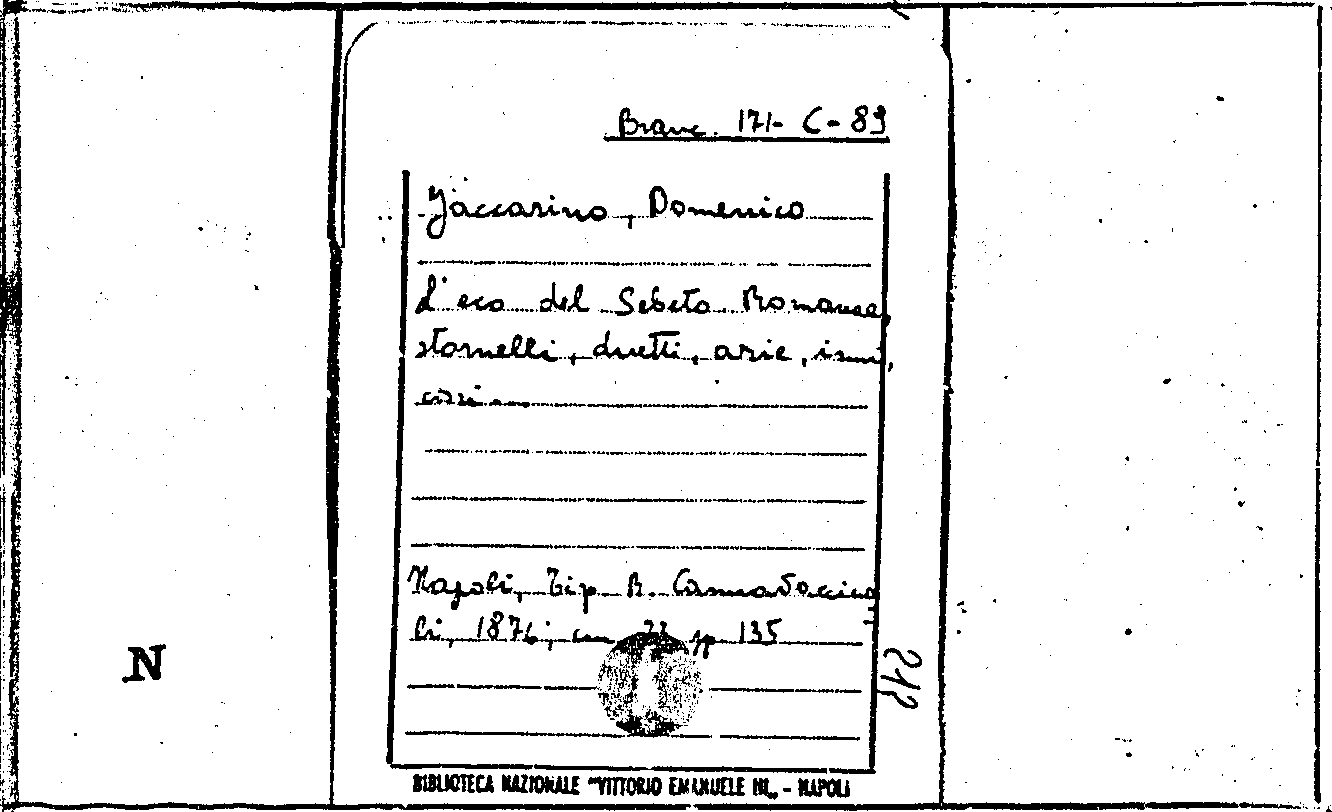 Branc. 171- C- 89
Jaccarino, Domenico
L'eco del Sebeto. Romanze,
stornelli, duetti, arie, inni,
cori
Napoli, Tip. R. Cannavacciuo
li, 1876; cm 23 pp 135
212
N
BIBLIOTECA NAZIONALE "VITTORIO EMANUELE III„ - NAPOLI